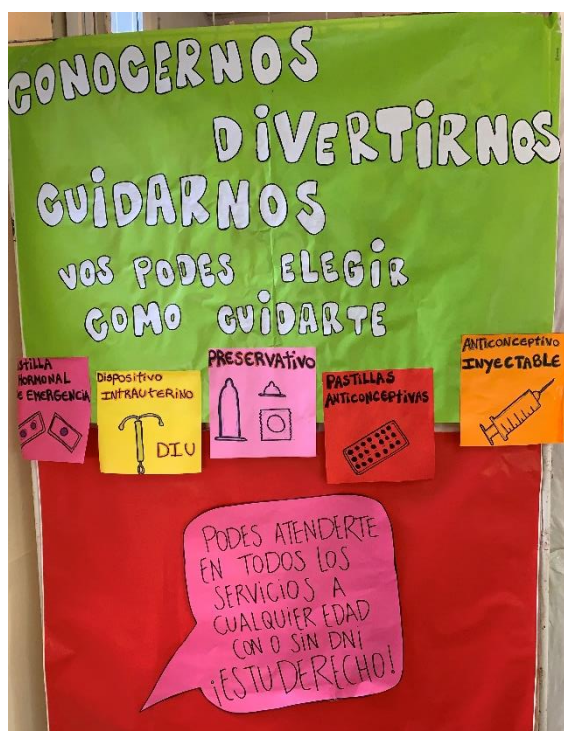 CONOCERNOS
DIVERTIRNOS
CUIDARNOS
VOS PODES ELEGIR
COMO CUIDARTE
HORMONAL
EMERGENCIA
Dispositivo
INTRAUTERINO
DIU
PRESERVATIVO
PASTILLAS
ANTICONCEPTIVAS
ANTICONCEPTIVO
INYECTABLE
PODES ATENDERTE
EN TODOS LOS
SERVICIOS A
CUALQUIER EDAD
CON O SIN DNI
¡ES TU DERECHO!